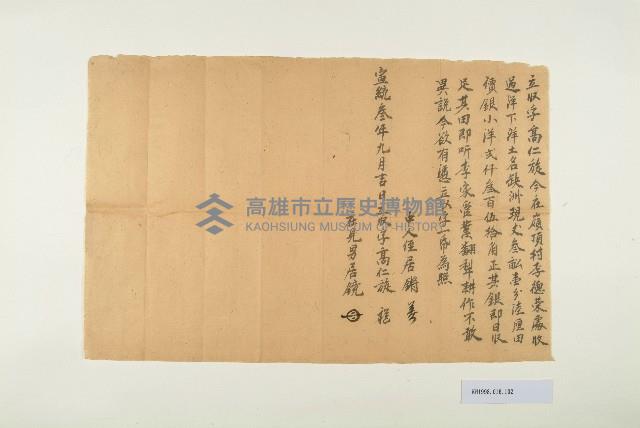 立收字高仁旋今在嶺項村李德榮處收
過洋下洋土名 洲現丈叁畝壹分陸厘田
價銀小洋弍仟叁百伍拾角正其銀即日收
足其田即听李家管業翻犁耕作不敢
異說今欲有憑立收字一帋為照
宣統叁年九月吉日立收字高仁旋
中人侄居鏘
在見男居鏡
高雄市立歷史博物館
KAOHSIUNG MUSEUM OF HISTORY
KH1998.018.102